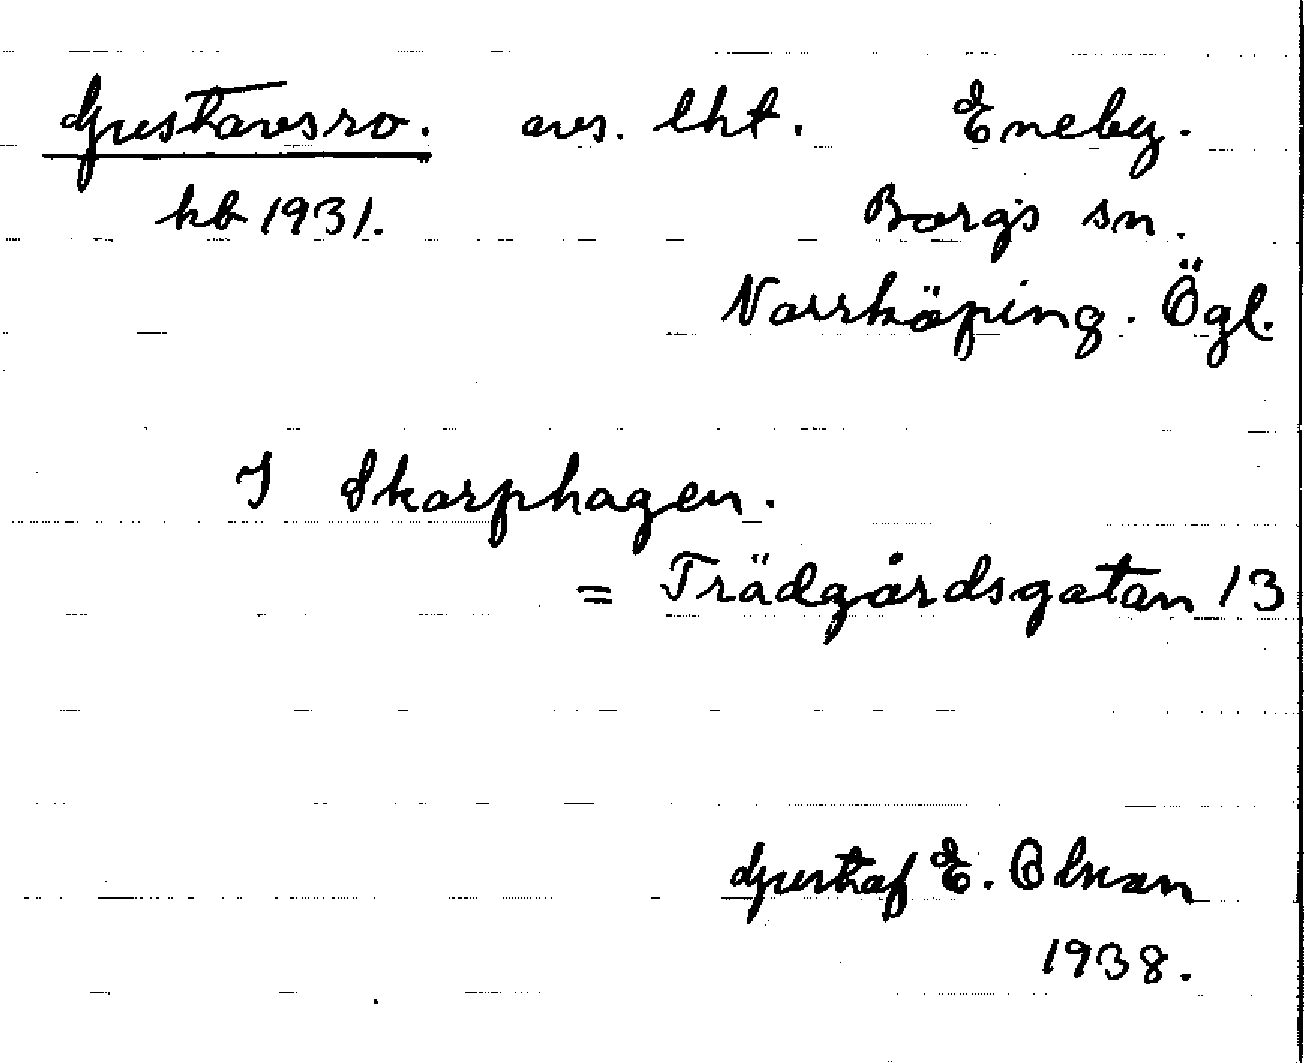 Gustavsro. avs. lht. Eneby.
kb 1931. Borgs sn.
Norrköping. Ögl.
I Skarphagen.
= Trädgårdsgatan 13
Gustaf E. Olsson
1938.